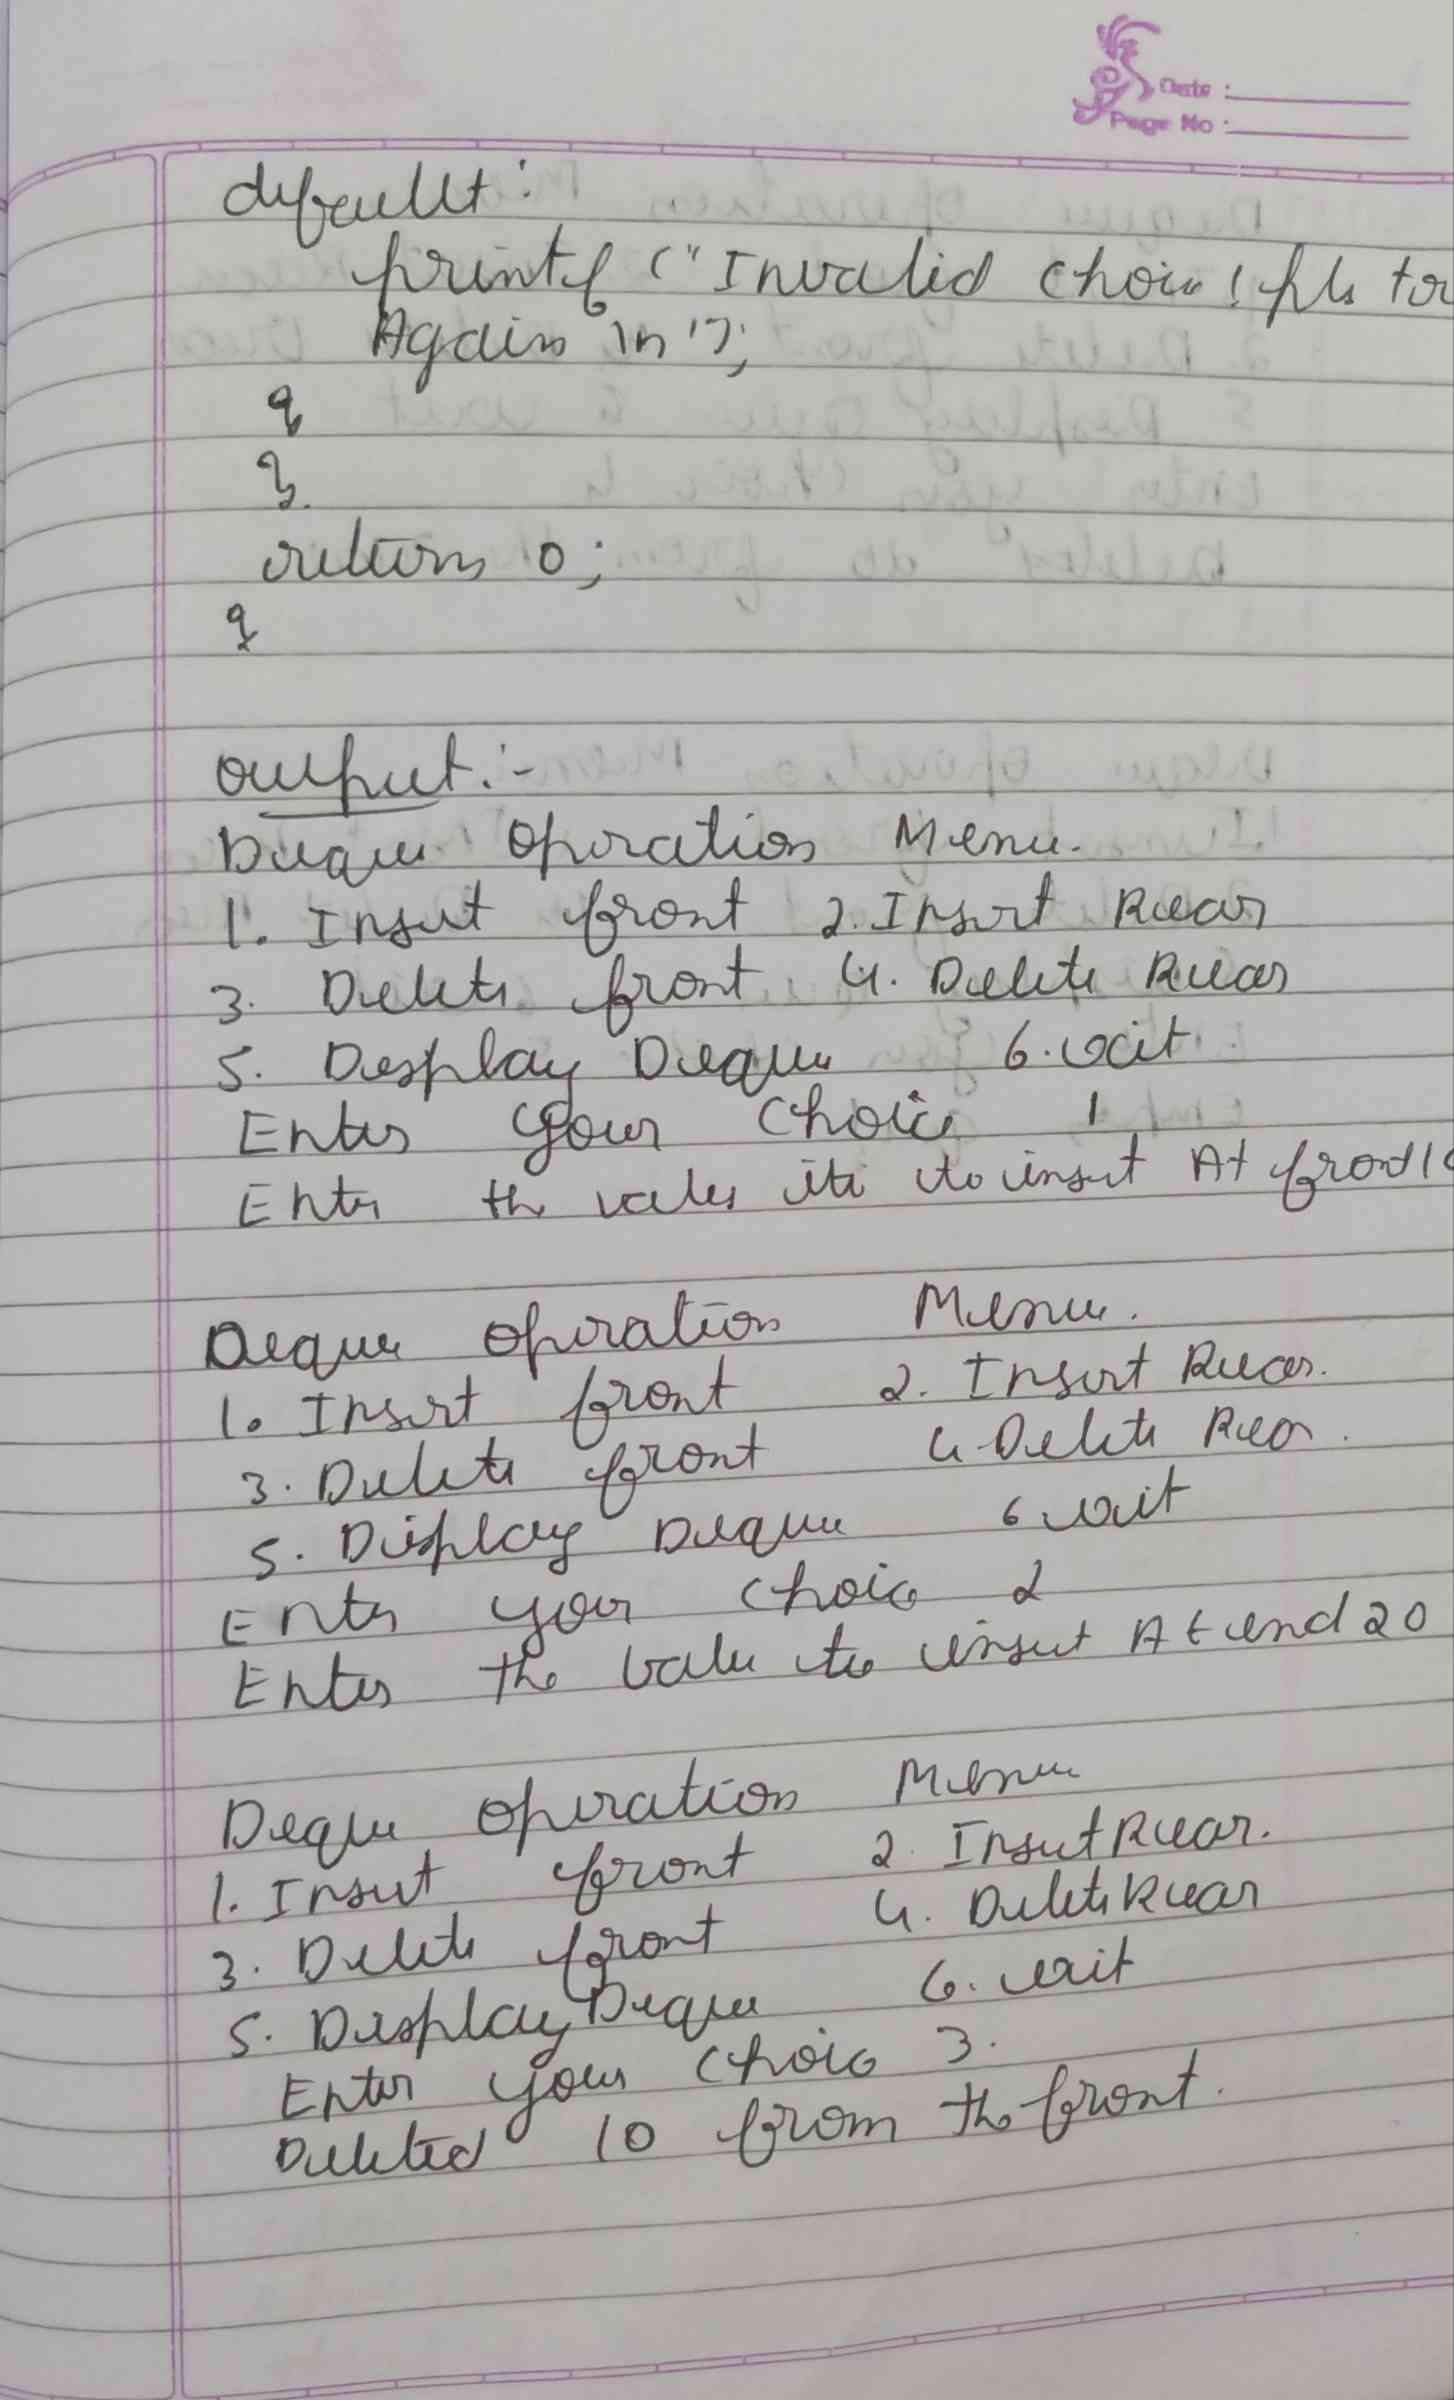 Date :
Page No :
default :
printf ("Invalid choice ! pls
Again \n");
}
}
return 0;
}
output :-
Deque operation Menu.
1. Insert front 2. Insert Rear
3. Delete front 4. Delete Rear
5. Display Deque 6. exit
Enter your choice 1
Enter the to insert At front
Deque operation Menu.
1. Insert front 2. Insert Rear.
3. Delete front 4. Delete Rear.
5. Display Deque 6 exit
Enter your choice 2
Enter the value to insert At end 20
Deque operation Menu
1. Insert front 2. Insert Rear.
3. Delete front 4. Delete Rear
5. Display Deque 6. exit
Enter your choice 3.
Deleted 10 from the front.